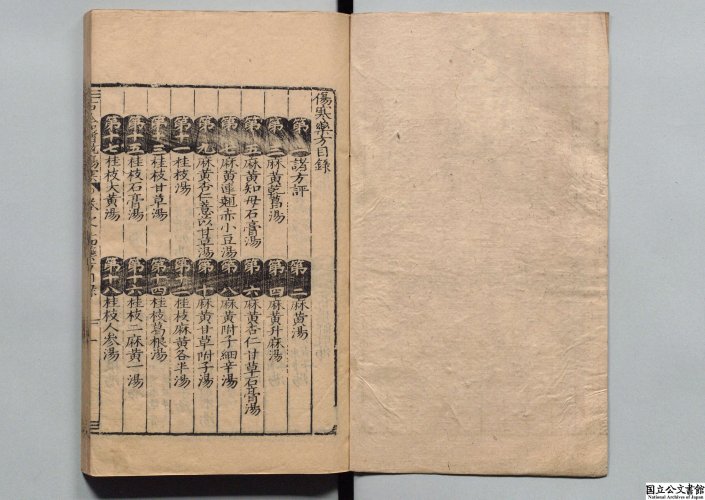 傷寒藥方目錄
第一諸方評
第二麻黄湯
第三麻黄乾葛湯
第四麻黄升麻湯
第五麻黄知母石膏湯
第六麻黄杏仁甘草石膏湯
第七麻黄連翹赤小豆湯
第八麻黄附子細辛湯
第九麻黄杏仁薏苡甘草湯
第十麻黄甘草附子湯
第十一桂枝湯
第十二桂枝麻黄各半湯
第十三桂枝甘草湯
第十四桂枝葛根湯
第十五桂枝石膏湯
第十六桂枝二麻黄一湯
第十七桂枝大黄湯
第十八桂枝人参湯
国立公文書館
National Archives of Japan